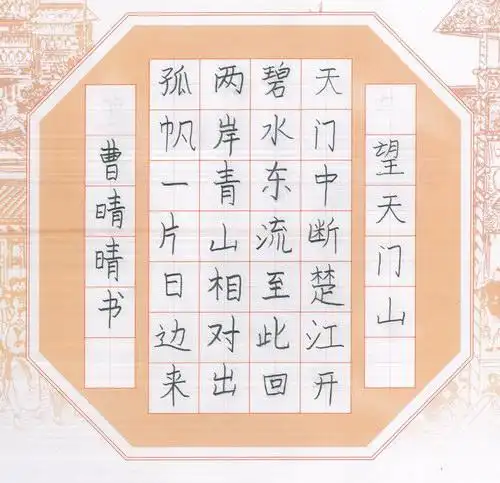 望天门山
天门中断楚江开
碧水东流至此回
两岸青山相对出
孤帆一片日边来
曹晴晴书